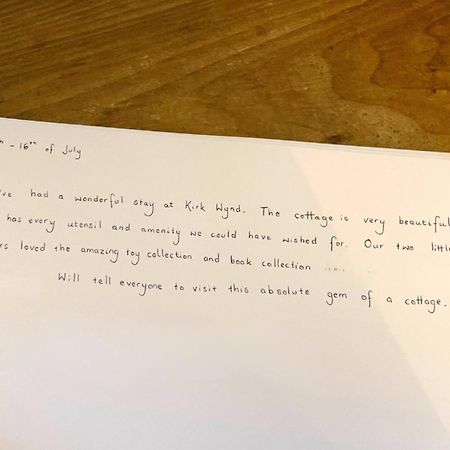 - 16th of July
've had a wonderful stay at Kirk Wynd. The cottage is very beautiful
has every utensil and amenity we could have wished for. Our two little
loved the amazing toy collection and book collection
Will tell everyone to visit this absolute gem of a cottage.